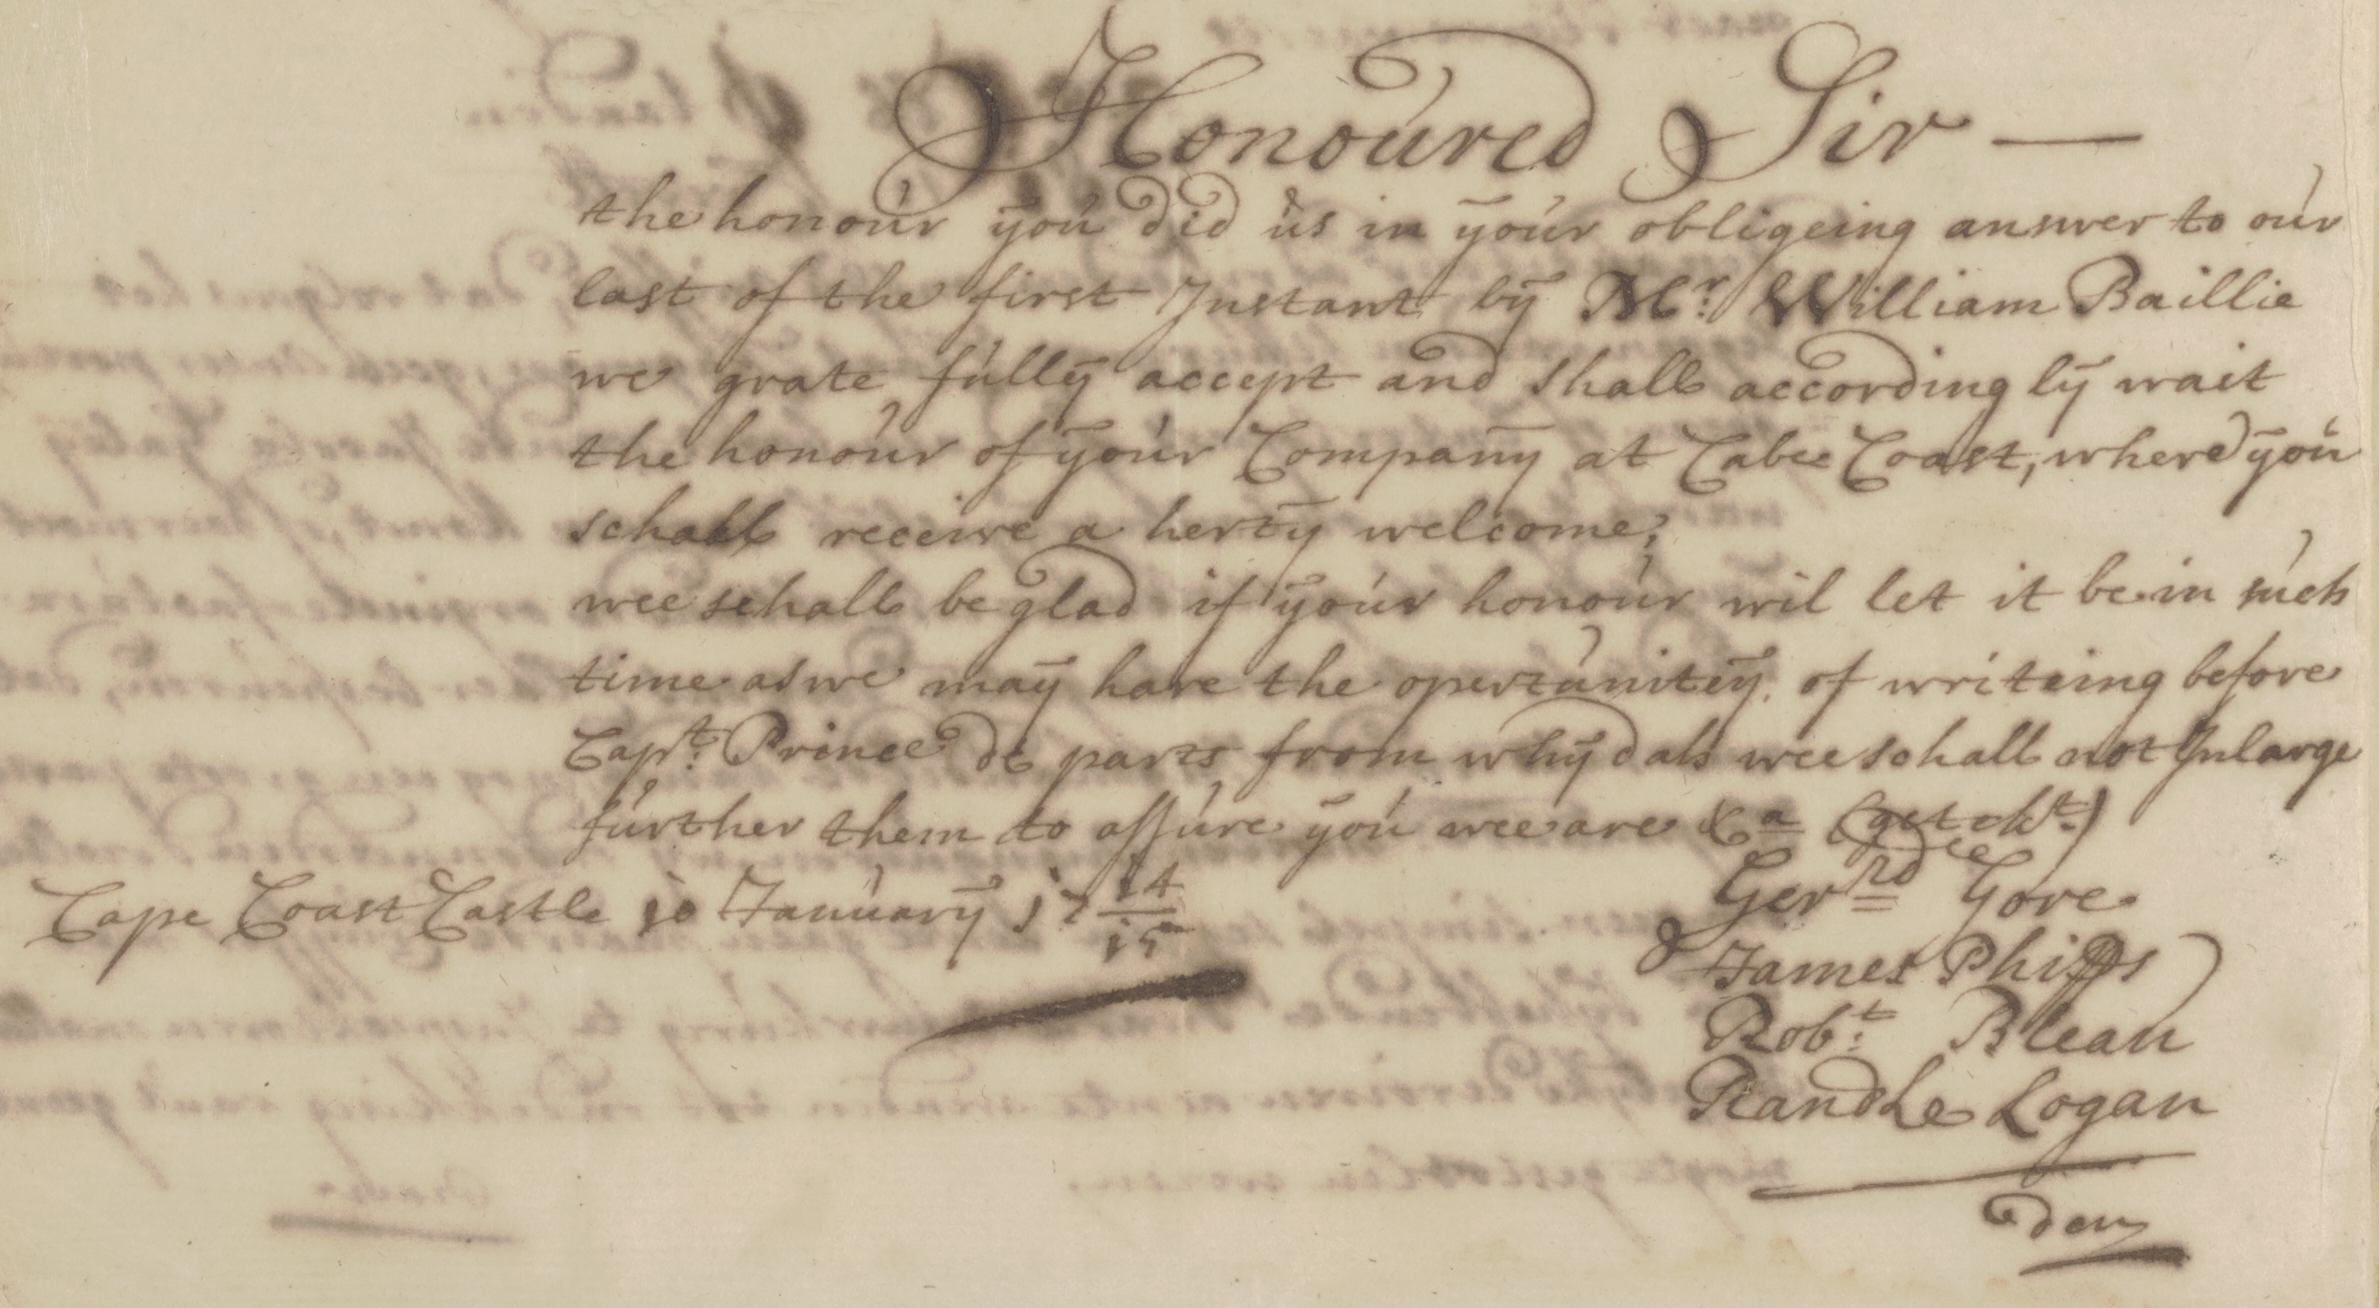 Honoured Sir —
the honour you did us in your obligeing answer to our
last of the first Instant by Mr: William Baillie
we grate fully accept and shall according ly wait
the honour of your Company at Cabee Coast, where you
schall receive a herty welcome;
wee schall be glad if your honour wil let it be in such
time as we may have the opertunitey of writeing before
Capt: Prince de parts from whydah wee schall not Inlarge
further them to assure you wee are &a (getekt:)
Gerrd Gore
Cape Coast Castle jo January j7 14/15
& James Phipps
Robt: Blean
Randle Logan
den